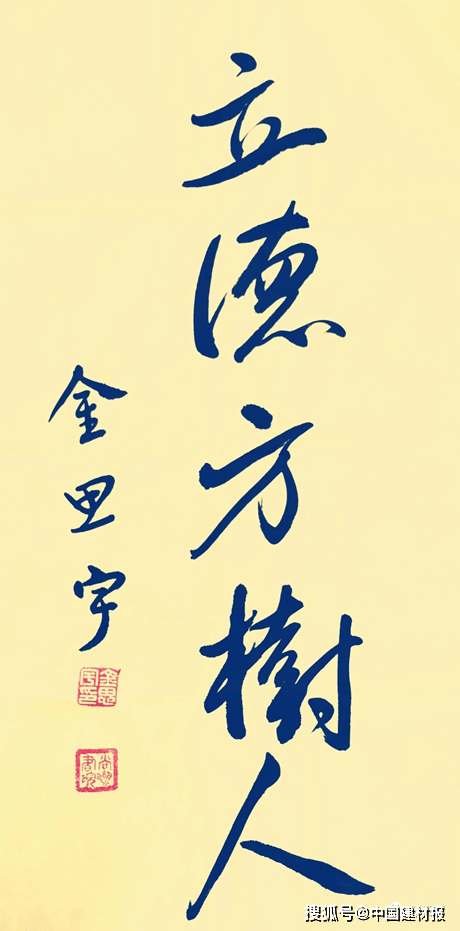 立德方樹人
金思宇
搜狐号@中国建材报